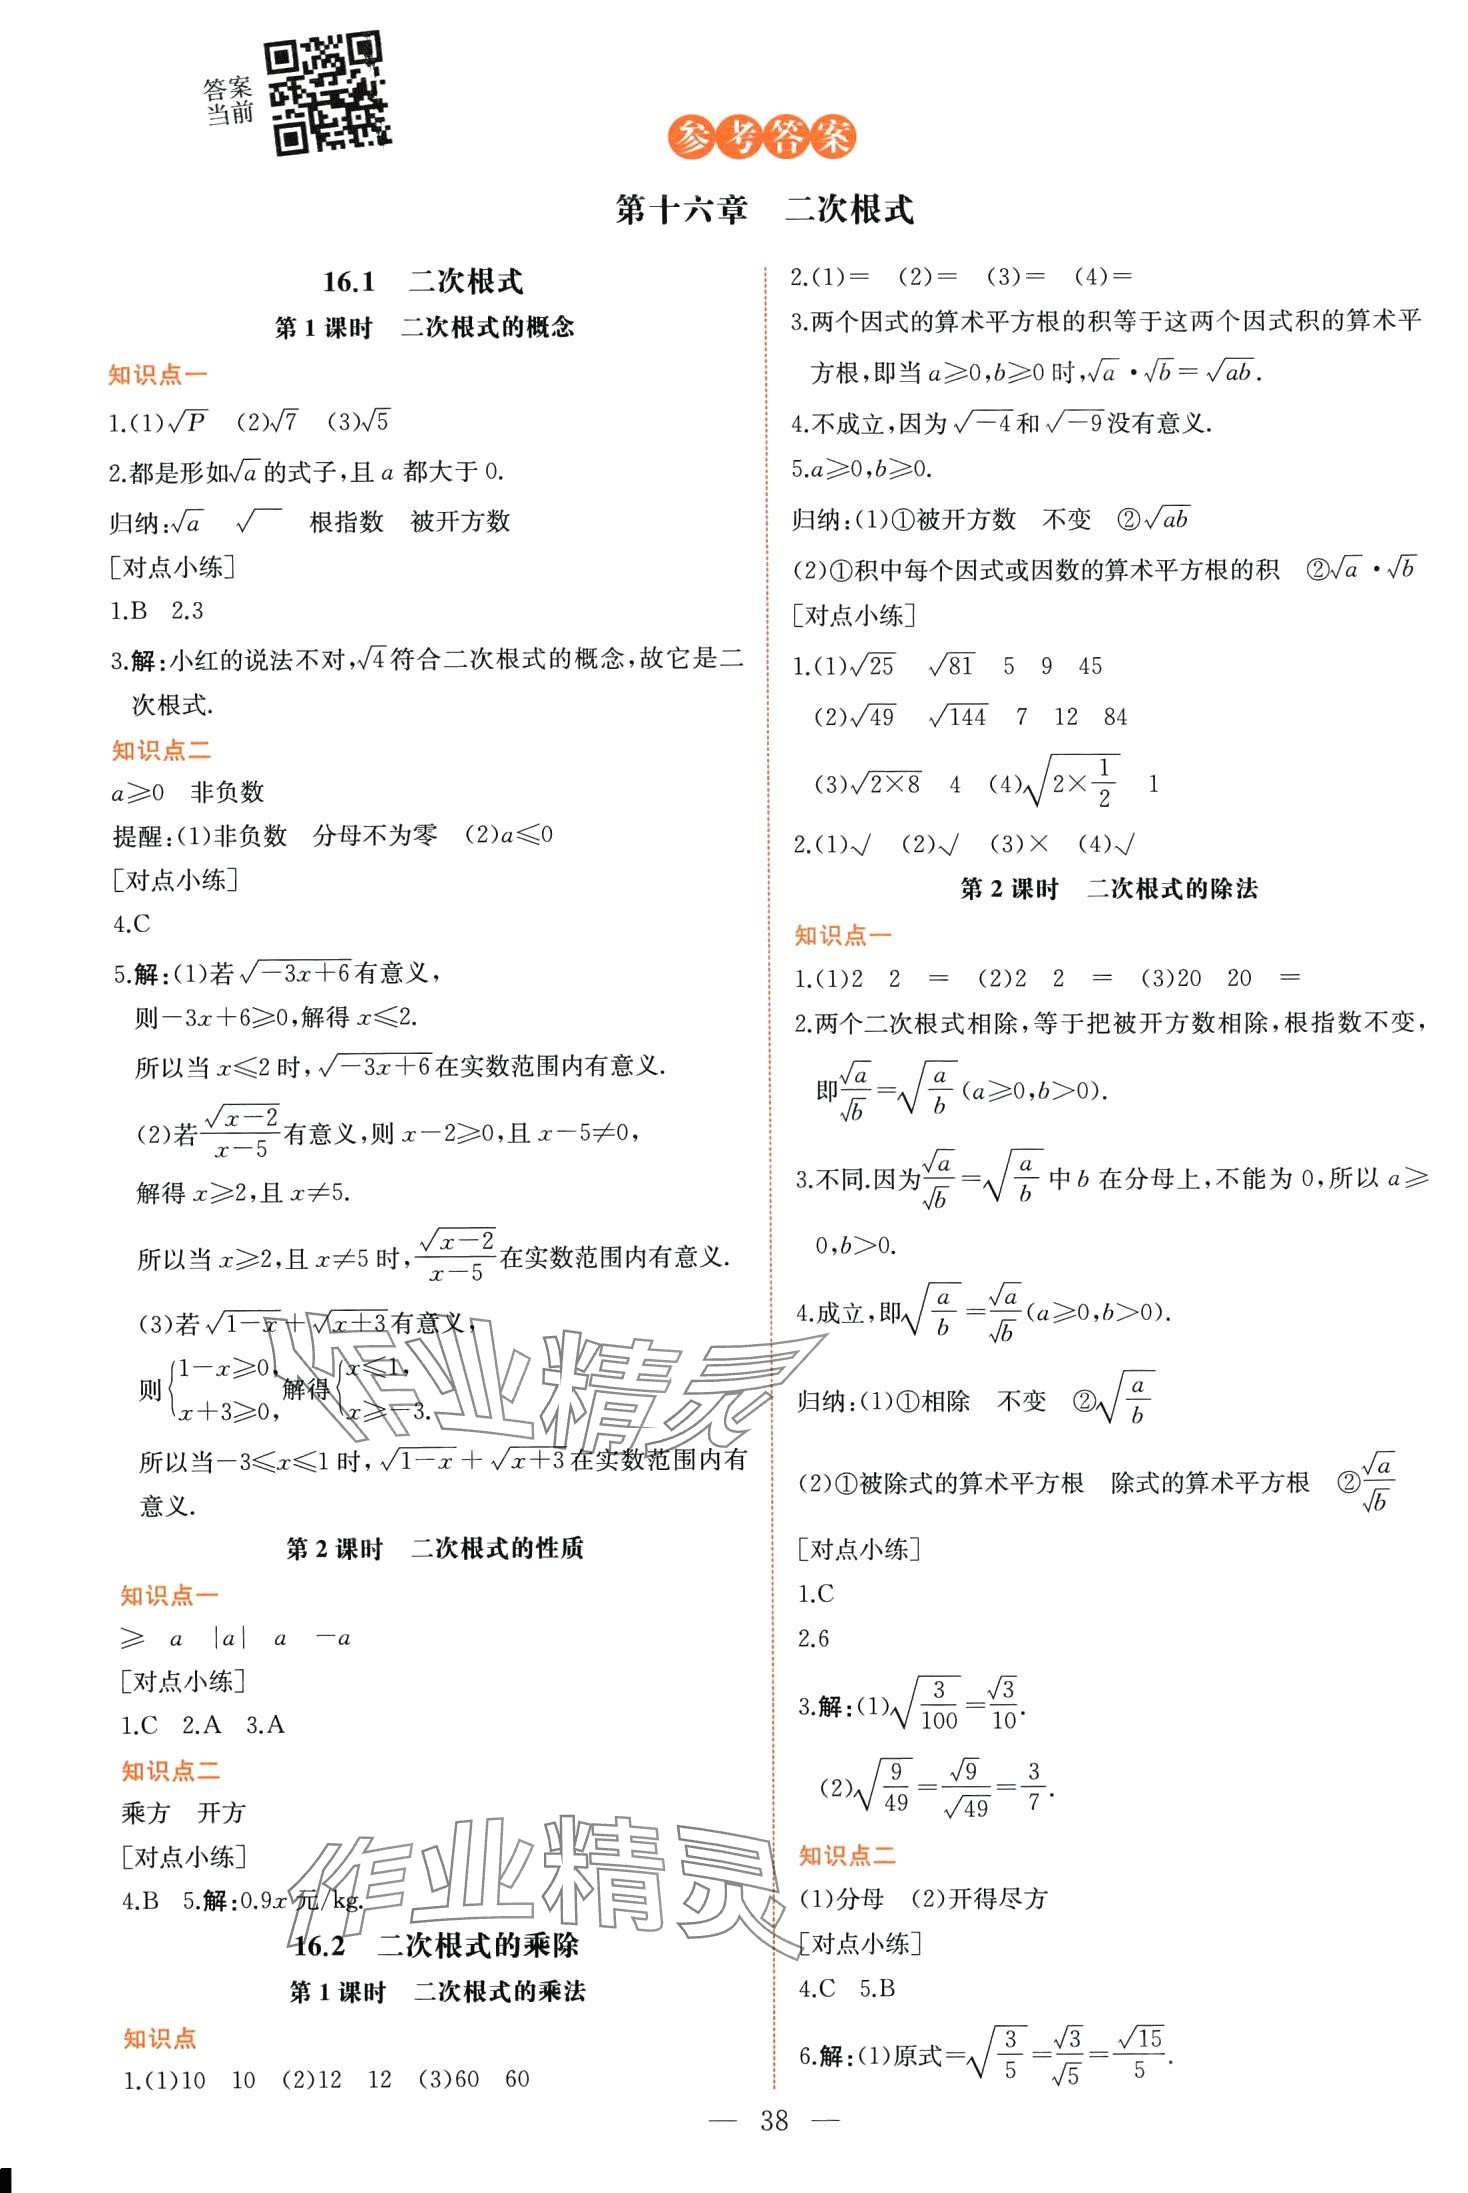 答案
当前
参考答案
第十六章 二次根式
16.1 二次根式
第1课时 二次根式的概念
知识点一
1.(1)√P (2)√7 (3)√5
2.都是形如√a的式子,且a都大于0.
归纳:√a √ 根指数 被开方数
[对点小练]
1.B 2.3
3.解:小红的说法不对,√4符合二次根式的概念,故它是二
次根式.
知识点二
a≥0 非负数
提醒:(1)非负数 分母不为零 (2)a≤0
[对点小练]
4.C
5.解:(1)若√(-3x+6)有意义,
则-3x+6≥0,解得x≤2.
所以当x≤2时,√(-3x+6)在实数范围内有意义.
(2)若√(x-2)/(x-5)有意义,则x-2≥0,且x-5≠0,
解得x≥2,且x≠5.
所以当x≥2,且x≠5时,√(x-2)/(x-5)在实数范围内有意义.
(3)若√(1-x)+√(x+3)有意义,
则{1-x≥0, x+3≥0, 解得{x≤1, x≥-3.
所以当-3≤x≤1时,√(1-x)+√(x+3)在实数范围内有
意义.
第2课时 二次根式的性质
知识点一
≥ a |a| a -a
[对点小练]
1.C 2.A 3.A
知识点二
乘方 开方
[对点小练]
4.B 5.解:0.9x元/kg.
16.2 二次根式的乘除
第1课时 二次根式的乘法
知识点
1.(1)10 10 (2)12 12 (3)60 60
2.(1)= (2)= (3)= (4)=
3.两个因式的算术平方根的积等于这两个因式积的算术平
方根,即当a≥0,b≥0时,√a·√b=√(ab).
4.不成立,因为√(-4)和√(-9)没有意义.
5.a≥0,b≥0.
归纳:(1)①被开方数 不变 ②√(ab)
(2)①积中每个因式或因数的算术平方根的积 ②√a·√b
[对点小练]
1.(1)√25 √81 5 9 45
(2)√49 √144 7 12 84
(3)√(2×8) 4 (4)√(2×1/2) 1
2.(1)√ (2)√ (3)× (4)√
第2课时 二次根式的除法
知识点一
1.(1)2 2 = (2)2 2 = (3)20 20 =
2.两个二次根式相除,等于把被开方数相除,根指数不变,
即√a/√b=√(a/b)(a≥0,b>0).
3.不同.因为√a/√b=√(a/b)中b在分母上,不能为0,所以a≥
0,b>0.
4.成立,即√(a/b)=√a/√b(a≥0,b>0).
归纳:(1)①相除 不变 ②√(a/b)
(2)①被除式的算术平方根 除式的算术平方根 ②√a/√b
[对点小练]
1.C
2.6
3.解:(1)√(3/100)=√3/10.
(2)√(9/49)=√9/√49=3/7.
知识点二
(1)分母 (2)开得尽方
[对点小练]
4.C 5.B
6.解:(1)原式=√(3/5)=√3/√5=√15/5.
作业精灵
作业精灵
— 38 —